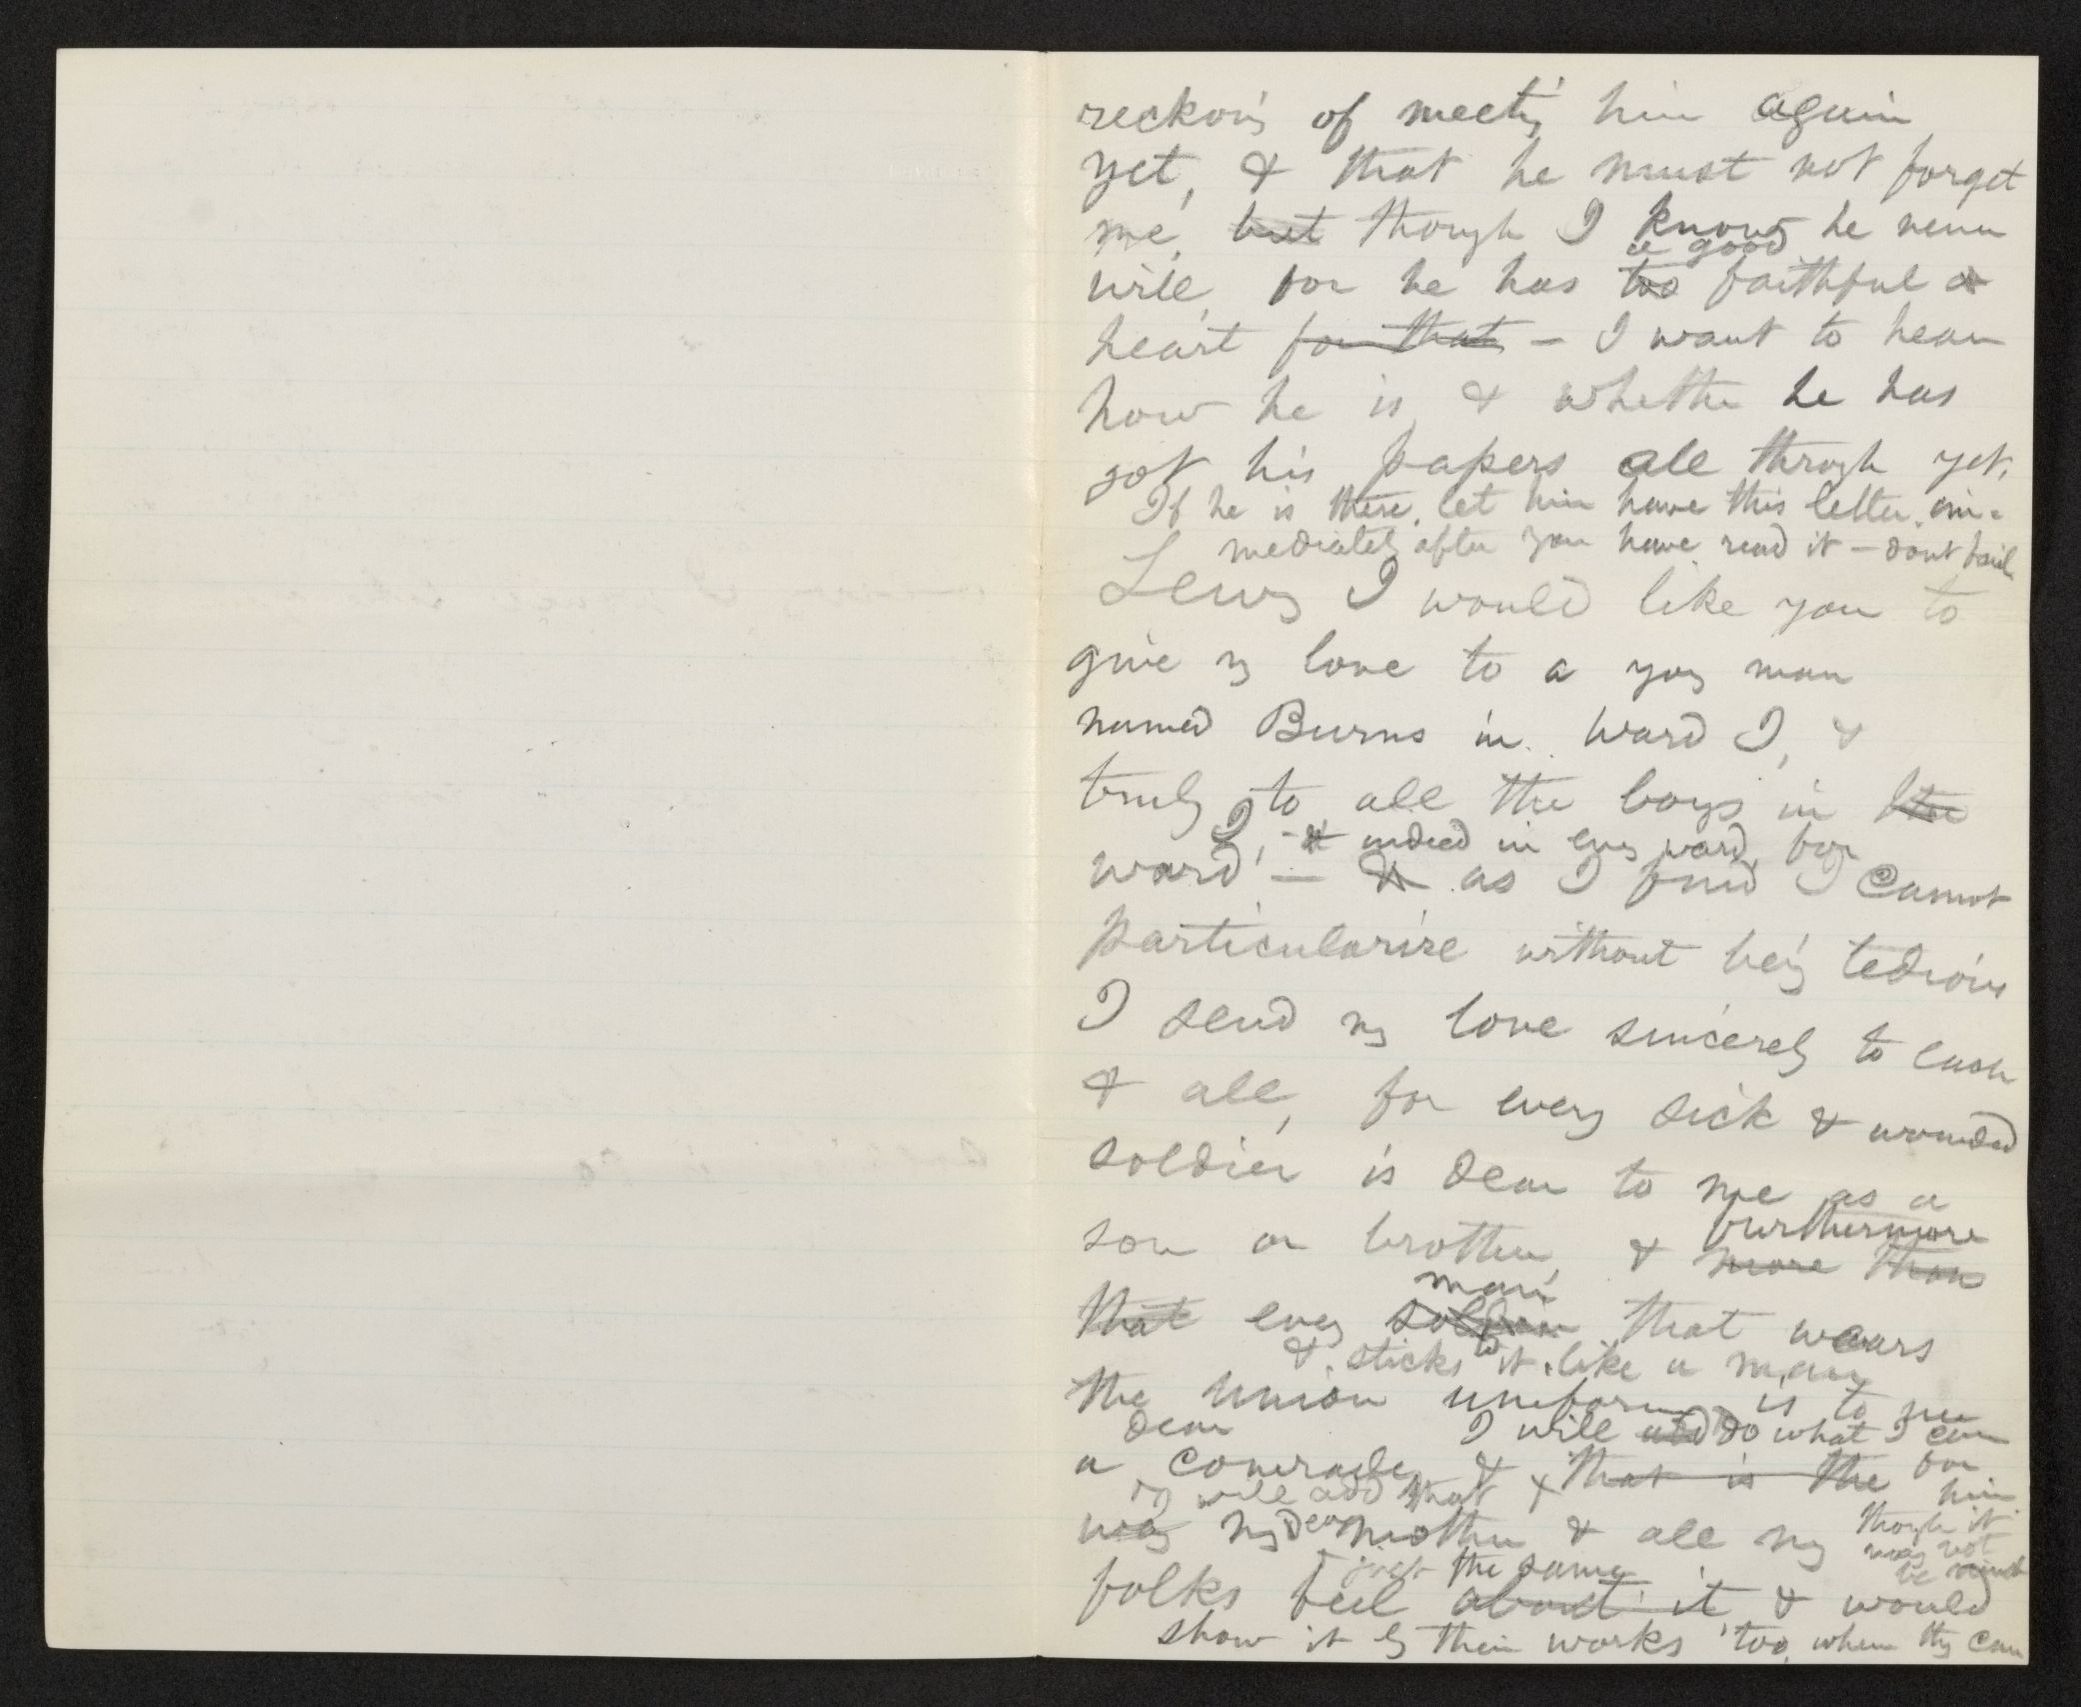 reckon'g of meet'g him again
yet, & that he must not forget
me, but though I know he never
a good
will, for he has too faithful a
heart for that – I want to hear
how he is, & whether he has
got his papers all through yet.
If he is there, let him have this letter, im-
mediately after you have read it – dont fail
Lewy I would like you to
give my love to a young man
named Burns in ward I, &
truly to all the boys in the
I, – & indeed in every ward, for
ward – & as I find I cannot
particularize without be'g tedious
I send my love sincerely to each
& all, for every sick & wounded
soldier is dear to me as a
furthermore
son or brother, & more than
man
that every soldier that wears
& sticks to it like a man
the union uniform, is to me
dear I will add do what I can
a comrade, & that is the for
I will add that him
way my dear mother & all my though it
may not
be much
just the same
folks feel about it & would
show it by their works too, when they can